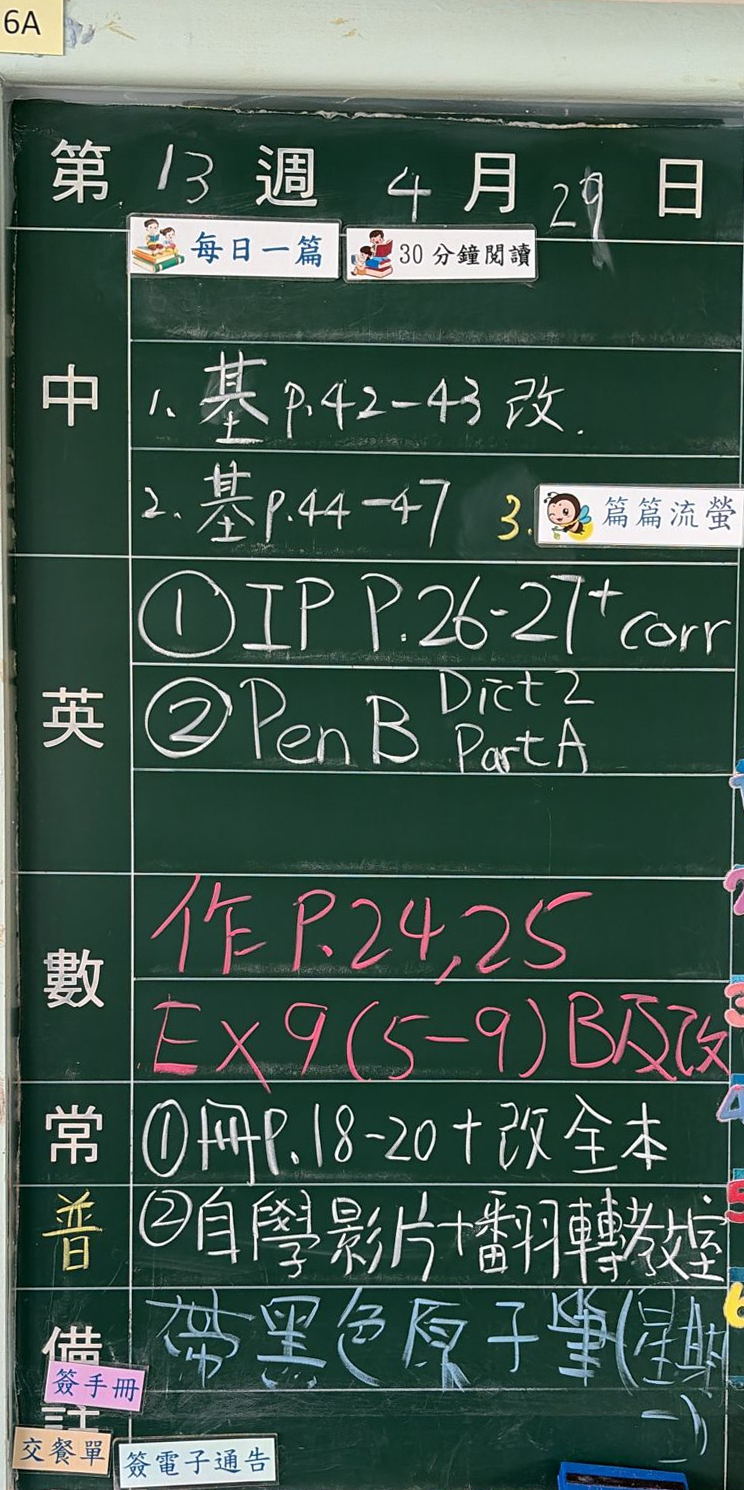 6A
第 13 週 4 月 29 日
每日一篇 30分鐘閱讀
中
1. 基 P.42-43 改.
2. 基 P.44-47 3. 篇篇流螢
英
① IP P.26-27 + corr
② Pen B Dict 2
Part A
數
作 P.24, 25
Ex 9 (5-9) B及改
常
① 冊P.18-20 + 改全本
普
② 自學影片+翻轉教室
備註
帶黑色原子筆(星期
一)
簽手冊
交餐單
簽電子通告
1
2
3
4
5
6